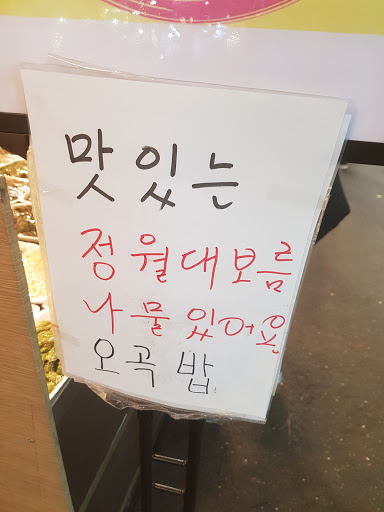 맛있는
정월대보름
나물있어용
오곡밥